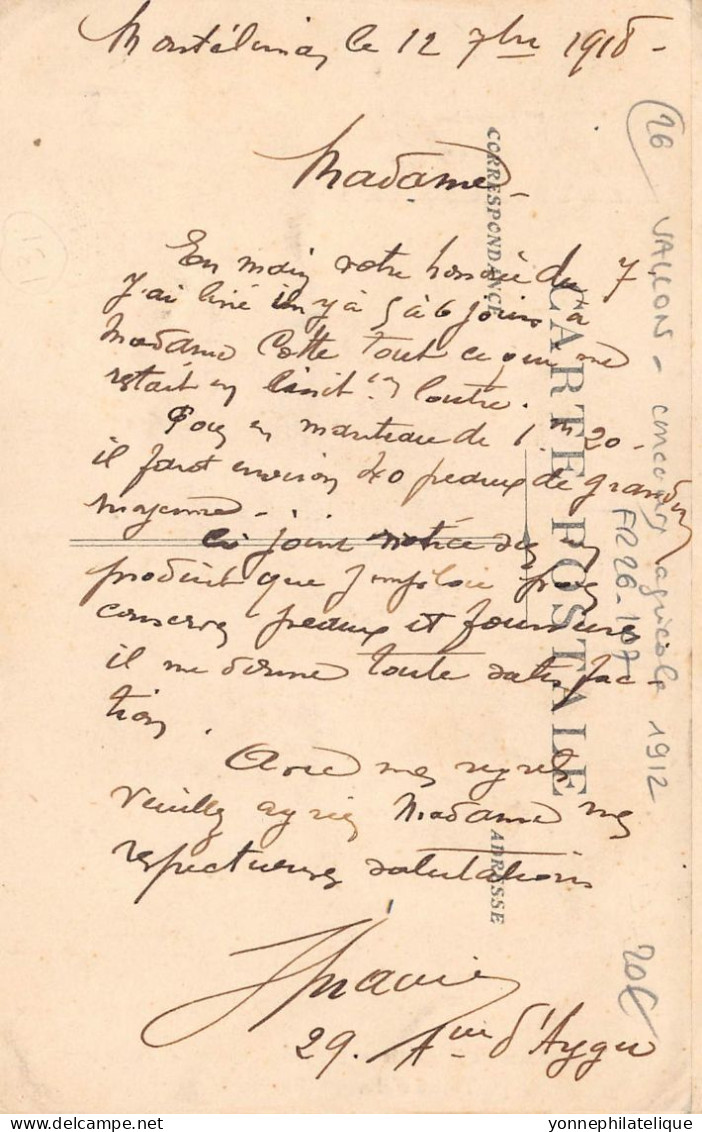 Montélimar le 12 7bre 1918 -
Madame -
En main votre honorée du 7
J'ai livré il y a 5 à 6 jours à
Madame Cotte tout ce qui me
restait en
loutre.
Pour un manteau de 1m20 -
il faut environ 40 peaux de grandeur
moyenne -
Ci joint notice des
produit que j'emploie pour
conserver peaux et fourrures
il me donne toute satisfac-
tion.
Avec mes regrets
Veuillez agréer Madame mes
respectueuses salutations
29. Avue d'Aygu
CORRESPONDANCE
CARTE POSTALE
ADRESSE
(26 VALLONS - concours agricole 1912
FR26-107
20€
yonnephilatelique